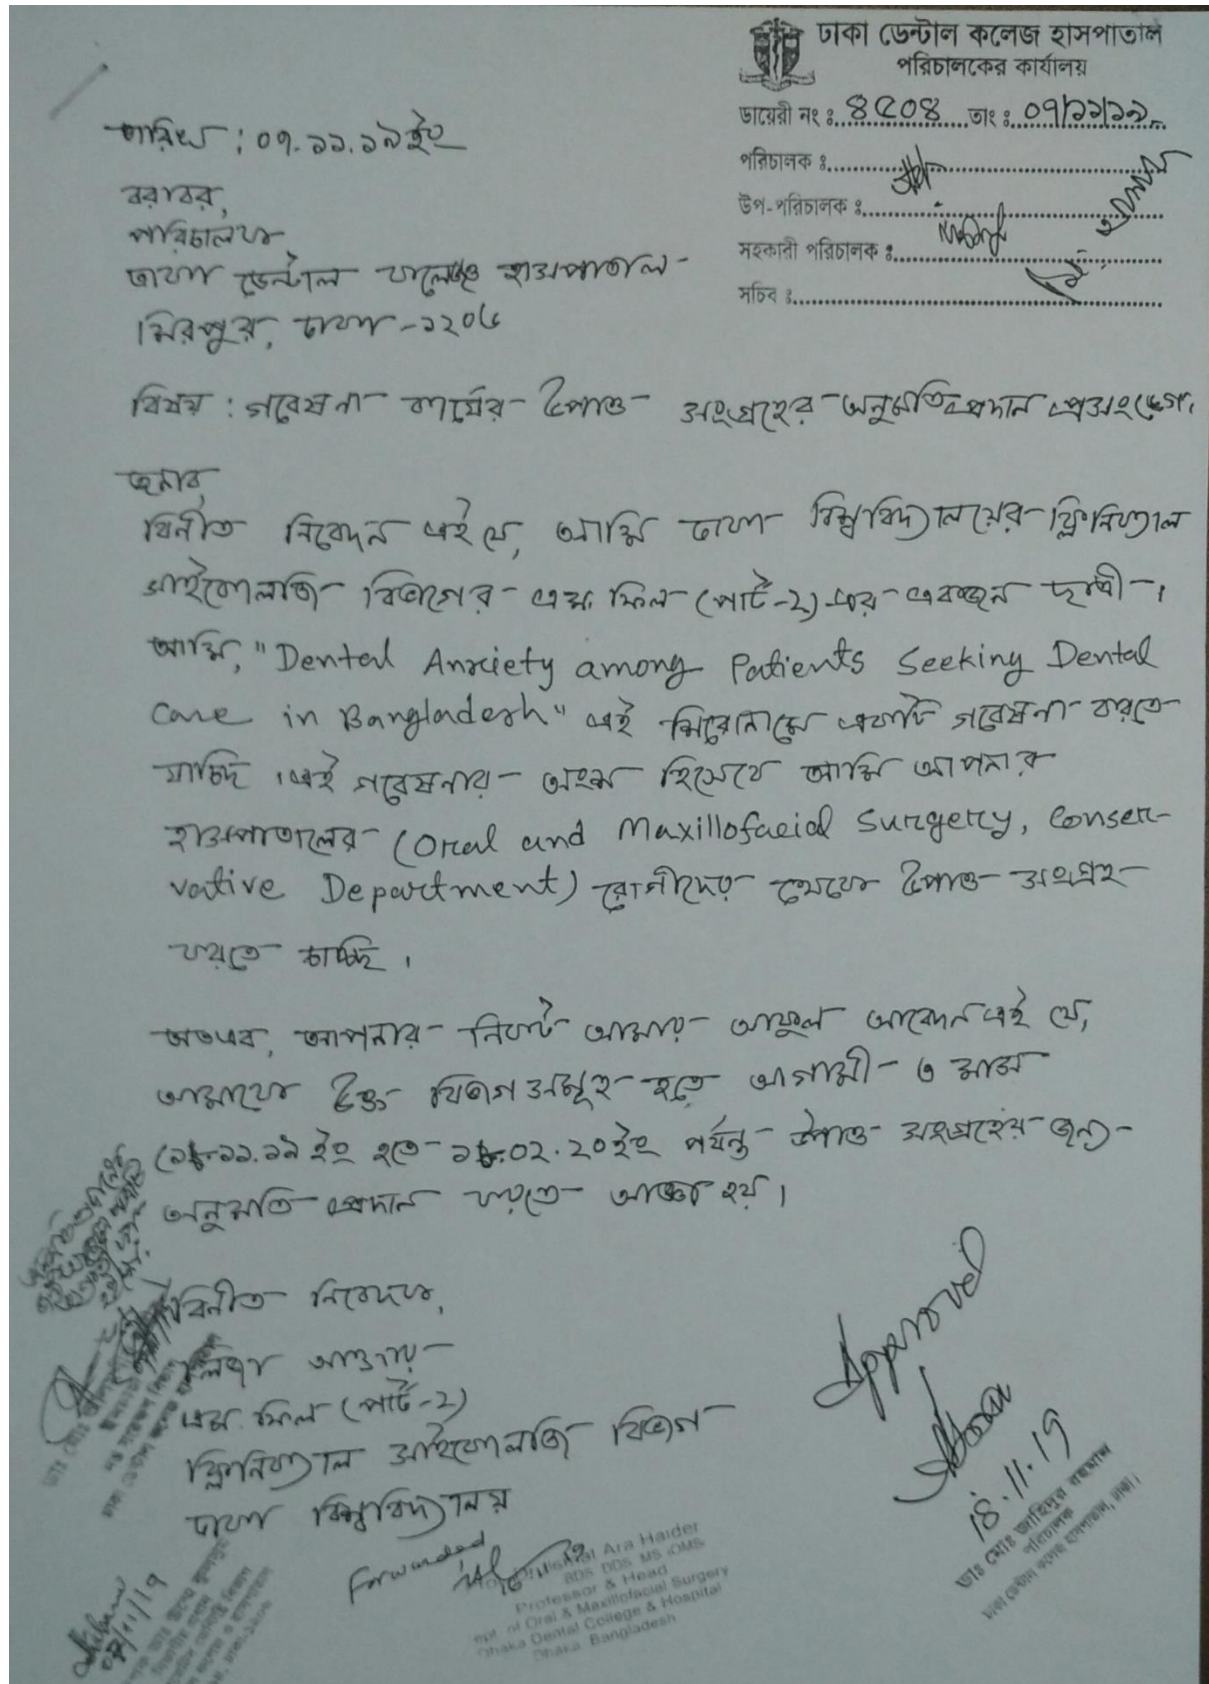 ঢাকা ডেন্টাল কলেজ হাসপাতাল
পরিচালকের কার্যালয়
ডায়েরী নং ঃ ৪৫০৪ তাং ঃ ০৭/১১/১৯
পরিচালক ঃ
উপ-পরিচালক ঃ
সহকারী পরিচালক ঃ
সচিব ঃ
তারিখ : ০৭.১১.১৯ইং
বরাবর,
পরিচালক
ঢাকা ডেন্টাল কলেজ হাসপাতাল
মিরপুর, ঢাকা -১২০৬
বিষয় : গবেষনা কার্যের উপাত্ত সংগ্রহের অনুমতি প্রদান প্রসংঙ্গে।
জনাব,
বিনীত নিবেদন এই যে, আমি ঢাকা বিশ্ববিদ্যালয়ের ক্লিনিক্যাল
সাইকোলজি বিভাগের এম. ফিল (পার্ট-২) এর একজন ছাত্রী।
আমি, "Dental Anxiety among Patients Seeking Dental
Care in Bangladesh" এই শিরোনামে একটি গবেষনা করতে
যাচ্ছি। এই গবেষনার অংশ হিসেবে আমি আপনার
হাসপাতালের (Oral and Maxillofacial Surgery, Conser-
vative Department) রোগীদের থেকে উপাত্ত সংগ্রহ
করতে চাচ্ছি।
অতএব, আপনার নিকট আমার আকুল আবেদন এই যে,
আমাকে উক্ত বিভাগ সমূহ হতে আগামী ৩ মাস
.১১.১৯ ইং হতে .০২.২০ইং পর্যন্ত উপাত্ত সংগ্রহের জন্য
অনুমতি প্রদান করতে আজ্ঞা হয়।
বিনীত নিবেদক,
আক্তার
এম. ফিল (পার্ট-২)
ক্লিনিক্যাল সাইকোলজি বিভাগ
ঢাকা বিশ্ববিদ্যালয়
Approved
18.11.19
ডাঃ মোঃ জাহিদুর রহমান
পরিচালক
ঢাকা ডেন্টাল কলেজ হাসপাতাল, ঢাকা।
Forwarded
Ara Haider
BDS DDS MS OMS
Professor & Head
ept. of Oral & Maxillofacial Surgery
Dhaka Dental College & Hospital
Dhaka Bangladesh
07/11/19